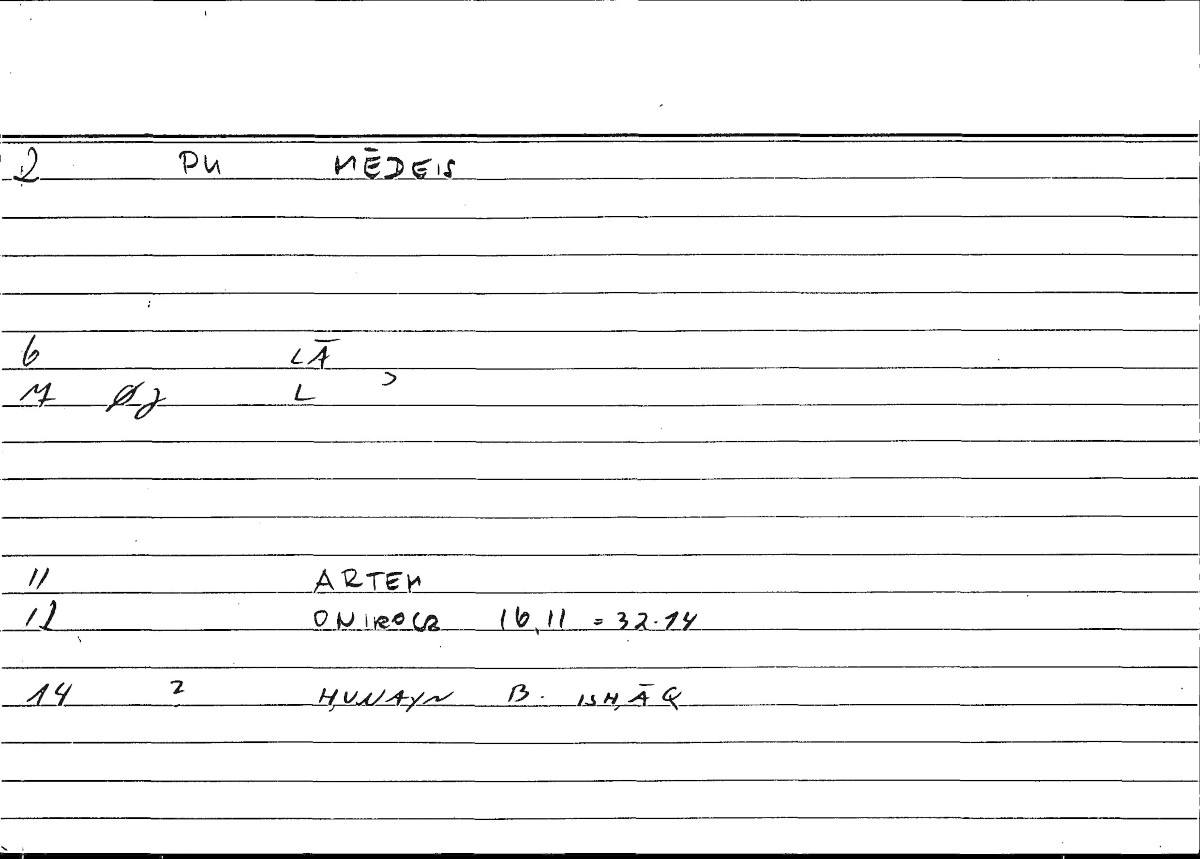 2 PN MĒDEIS
6 LĀ
7 Øj L ʾ
11 ARTEM
12 ONIROCR 16,11 = 32.14
14 2 ḤUNAYN B. ISḤĀQ